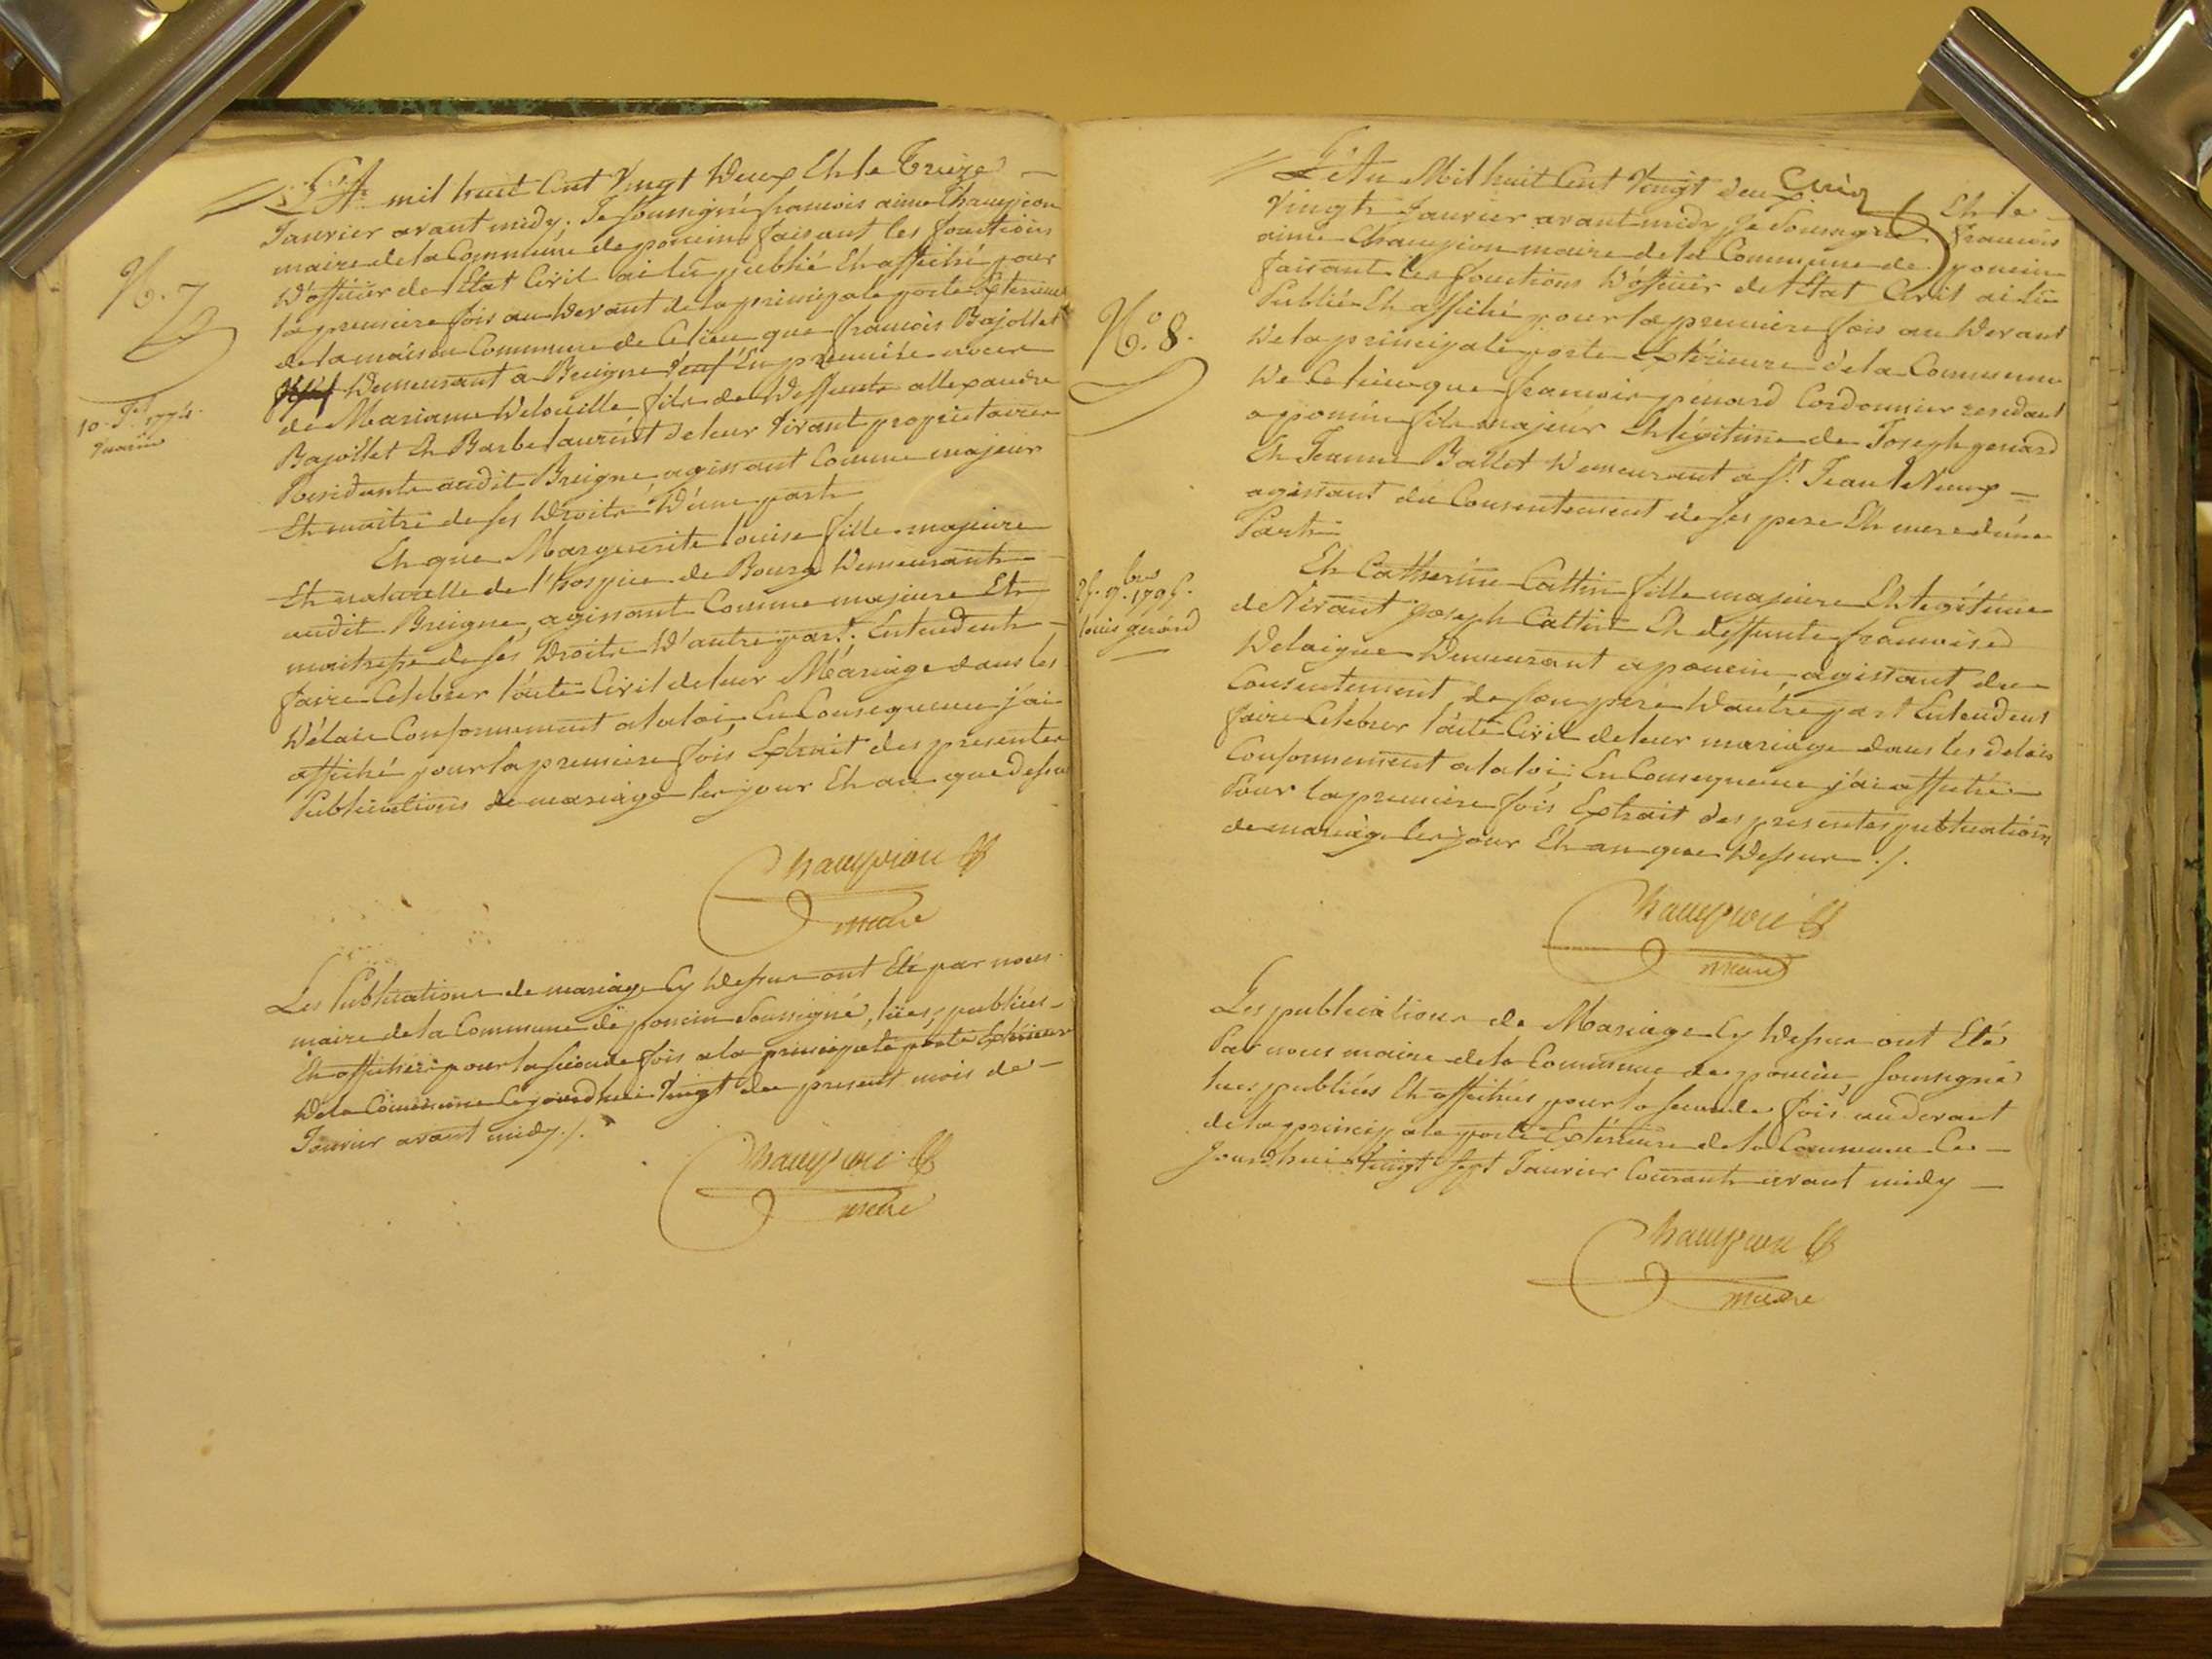 L'An mil huit Cent Vingt Deux Et le Treize
Janvier avant midy, Je soussigné francois aimé Champion
maire de la Commune de poncin faisant les fonctions
D'officier de l'Etat Civil ai lu publié Et affiché pour
la premiere fois au Devant de la principale porte Exterieure
de la maison Commune de Ce lieu que francois Bajollet
Demeurant a Breigne Veuf En premiere noces
de Marianne Delouille fils de Deffunts allexandre
Bajollet Et Barbe laurent de leur Vivant propriétaires
Residants audit Breigne agissant Comme majeur
Et maitre de ses Droits D'une part
Et que Marguerite louise fille majeure
Et naturelle de l'hospice de Bourg Demeurant
audit Breigne, agissant Comme majeure Et
maitresse de ses Droits D'autre part. Entendent
faire Celebrer l'acte Civil de leur Mariage dans les
Délais Conformement a la loi, En Consequence j'ai
affiché pour la premiere fois Extrait des presentes
Publications de mariage les jour Et an que dessus
Champion
maire
Les Publications de mariage Cy Dessus ont Eté par nous
maire de la Commune de poncin Soussigné, lües, publiées
Et affichées pour la seconde fois a la principale porte Exterieure
De la Commune Ce jourd'hui Vingt du present mois de
Janvier avant midy ./.
Champion
maire
N. 7
10. 1774.
L'An Mil huit Cent Vingt deux Et le
Vingt Janvier avant midy Je Soussigné francois
aimé Champion maire de la Commune de poncin
faisant les fonctions D'officier de l'Etat Civil ai lu
Publié Et affiché pour la premiere fois au Devant
De la principale porte Extérieure de la Commune
De Ce lieu que francois genard Cordonnier residant
a poncin fils majeur Et légitime de Joseph genard
Et Jeanne Ballet Demeurant a St. Jean le Vieux
agissant du Consentement de ses pere Et mere d'une
Part
Et Catherine Cattin fille majeure Et legitime
de Vivant Joseph Cattin Et deffunte francoise
Delaigue Demeurant a poncin agissant du
Consentement de son pere D'autre part Entendent
faire Celebrer l'acte Civil de leur mariage dans les delais
Conformement a la loi: En Consequence j'ai affiché
Pour la premiere fois Extrait des presentes publications
de mariage les jour Et an que Dessus ./.
Champion
maire
Les publications de Mariage Cy Dessus ont Eté
Par nous maire de la Commune de poncin, soussigné
lues, publiées Et affichées pour la seconde fois au devant
de la principale porte Extérieure de la Commune Ce
Jourd'hui Vingt Sept Janvier Courant avant midy
Champion
maire
N.o 8.
bre
1795.
louis genard